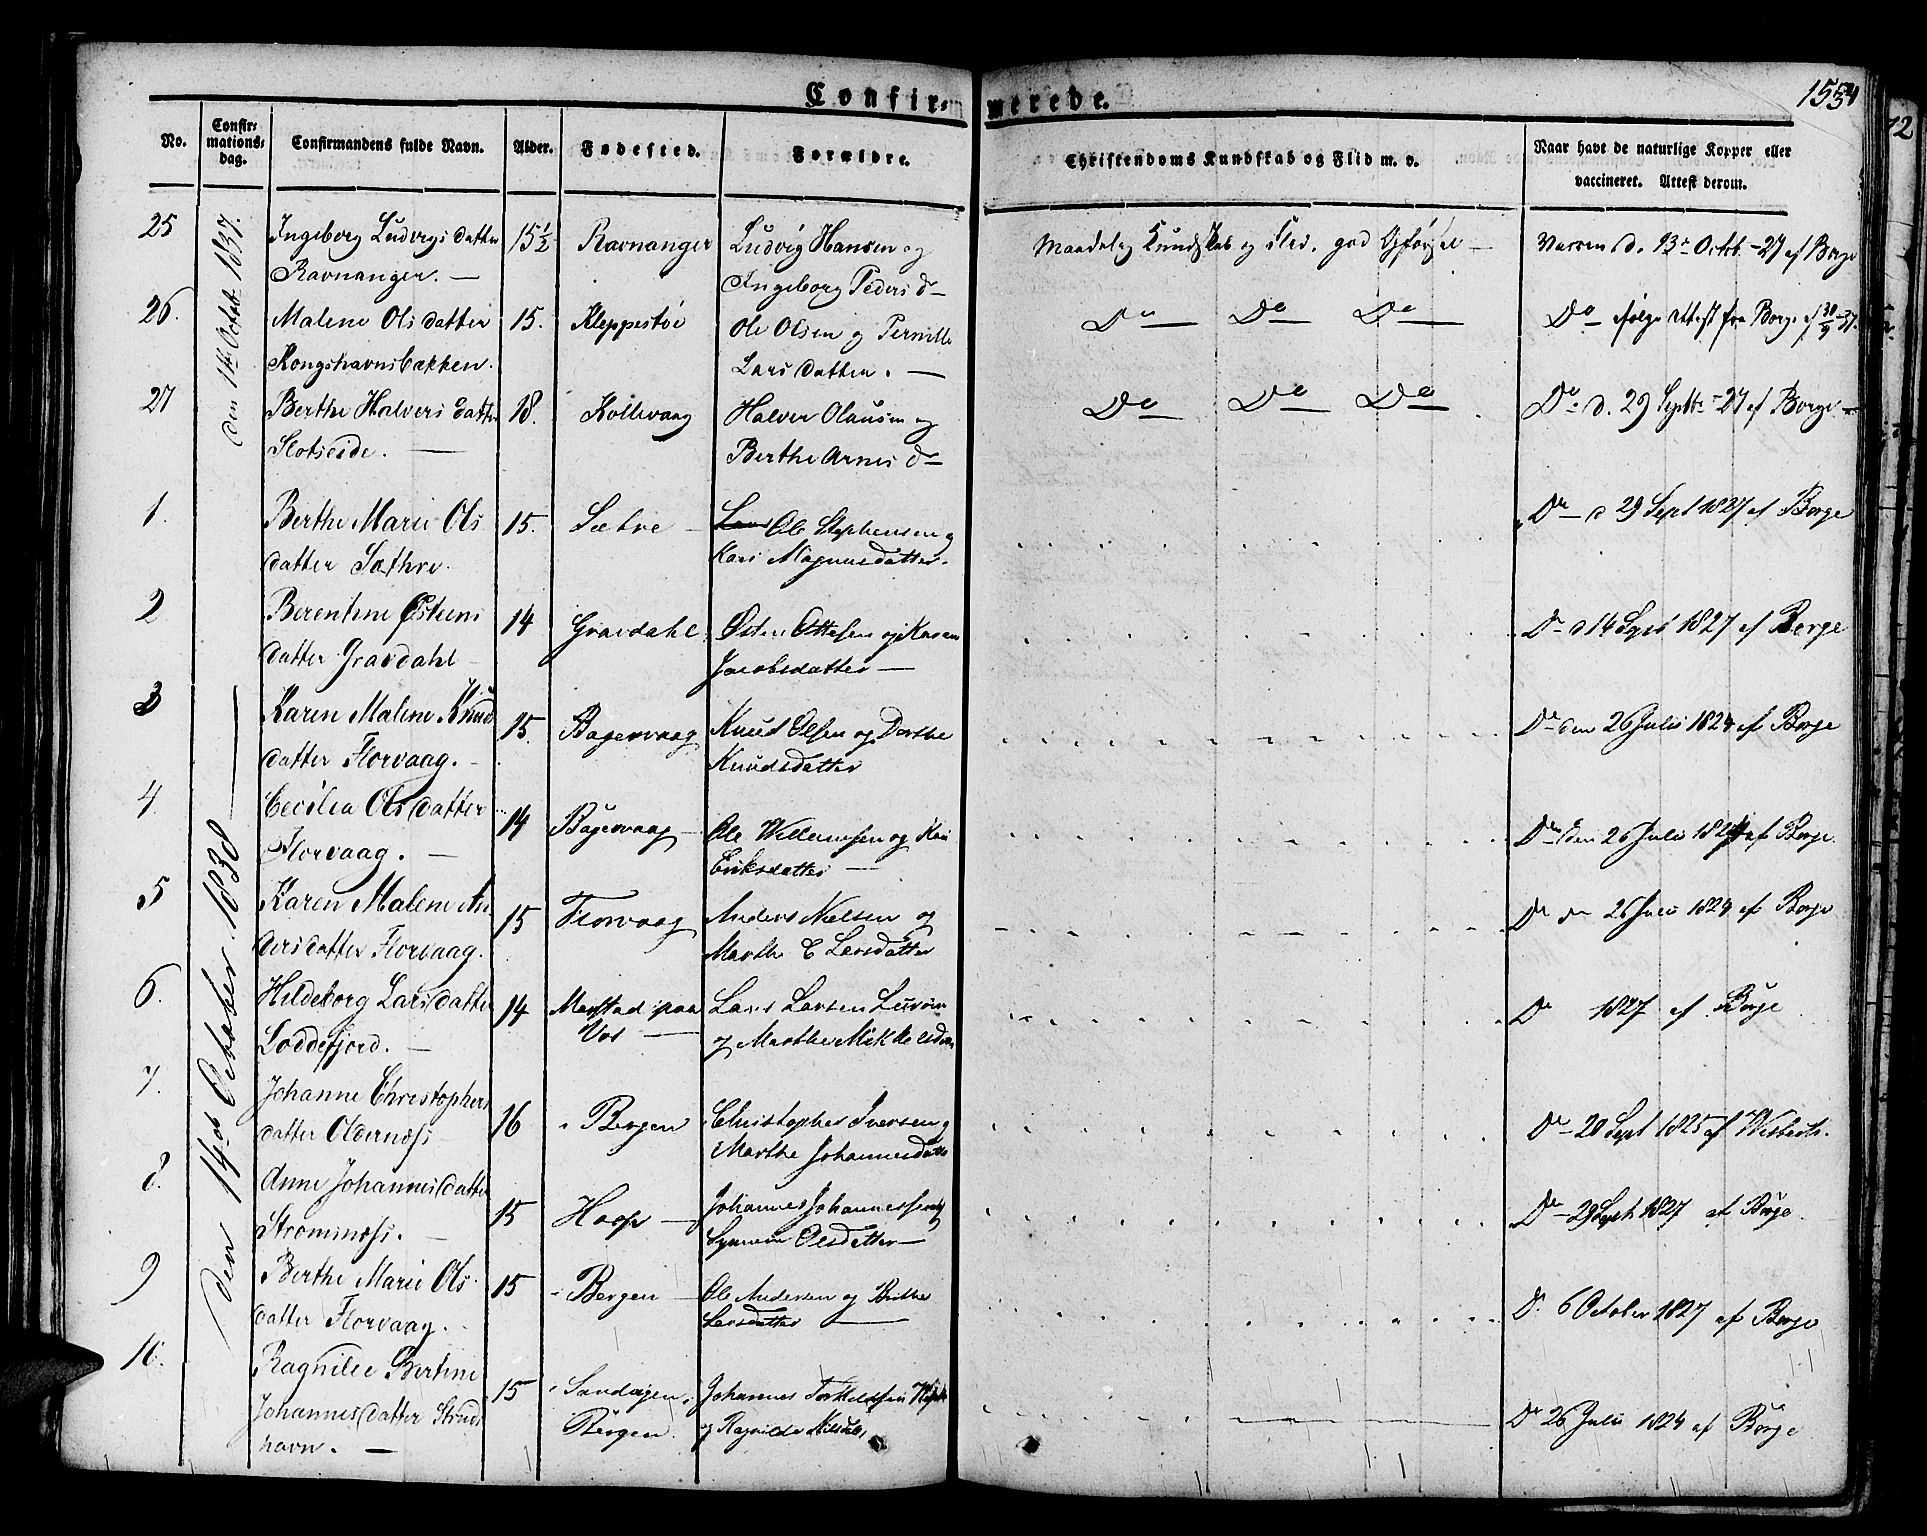 Confirmerede.
155
No.
Confirmationsdag.
Confirmandens fulde Navn.
Alder.
Fødested.
Forældre.
Christendoms Kundskab og Flid m. v.
Naar havt de naturlige Kopper eller
vaccineret. Attest derom.
den 1ste Octob. 1837.
25 Ingeborg Ludvigsdatter 15½ Ravnanger Ludvig Hansen og Maadelig Kundskab og Flid. god Opførsel — Vaccin. d. 13de Octob. - 27 af Borge
Ravnanger. — Ingeborg Peders d—
26. Malene Olsdatter 15. Kleppestøe Ole Olsen og Pernille Do Do Do Do — følge Attest fra Borge af
Kongshavnsbakken. Larsdatter. —
27 Berthe Halversdatter 18. Kollevaag Halver Olausen og Do Do Do Do d. 29 Septbr - 27 af Borge —
Slotseide. — Berthe Arnes d—
den 14de October 1838 —
1. Berthe Marie Ols 15. Sætre — Ole Stephensen og Do — d 29 Sept 1827 af Borge
datter Sæthre. Kari Magnusdatter.
2 Berenthine Østens 14 Gravdahl Østen Ottesen og Karen Do d 14 Sept 1827 af Borge
datter Gravdahl — Jacobsdatter —
3 Karen Malene Knuds 15. Bagervaag Knud Olsen og Dorthe Do den 26 Julii 1824 af Borge
datter Florvaag. — Knudsdatter
4 Cecilia Olsdatter 14 Bagervaag — Ole Willumsen og Kari Do den 26 Julii 1824 af Borge.
Florvaag. — Eriksdatter —
5 Karen Malene An 15 Florvaag Anders Nielsen og Do den 26 Julii 1824 af Borge
dersdatter Florvaag. Marthe C Larsdatter
6. Hildeborg Larsdatter 14 Mestad paa Lars Larsen Do 1827 af Borge
Loddefjord. — Vos — og Marthe Mikkelsdatter
7. Johanne Christophers 16 Bergen Christopher Iversen og Do — 20 Sept 1825 af Wisbech.
datter Oldernæss — Marthe Johannesdatter
8. Anne Johannesdatter 15 Hoop — Johannes Johannessen og Do — 29 Sept 1827 af Borge
Strømnæss. — Olsdatter —
9 Berthe Marie Ols 15 Bergen — Ole Andersen og Brithe Do 6 October 1827 af Borge
datter Florvaag. Larsdatter —
10. Ragnilde Bertine 15 Sandvigen Johannes Torkildsen Do 26 Julii 1824 af Borge
Johannesdatter Struds Bergen. og Ragnilde Nilsdatter
havn. —